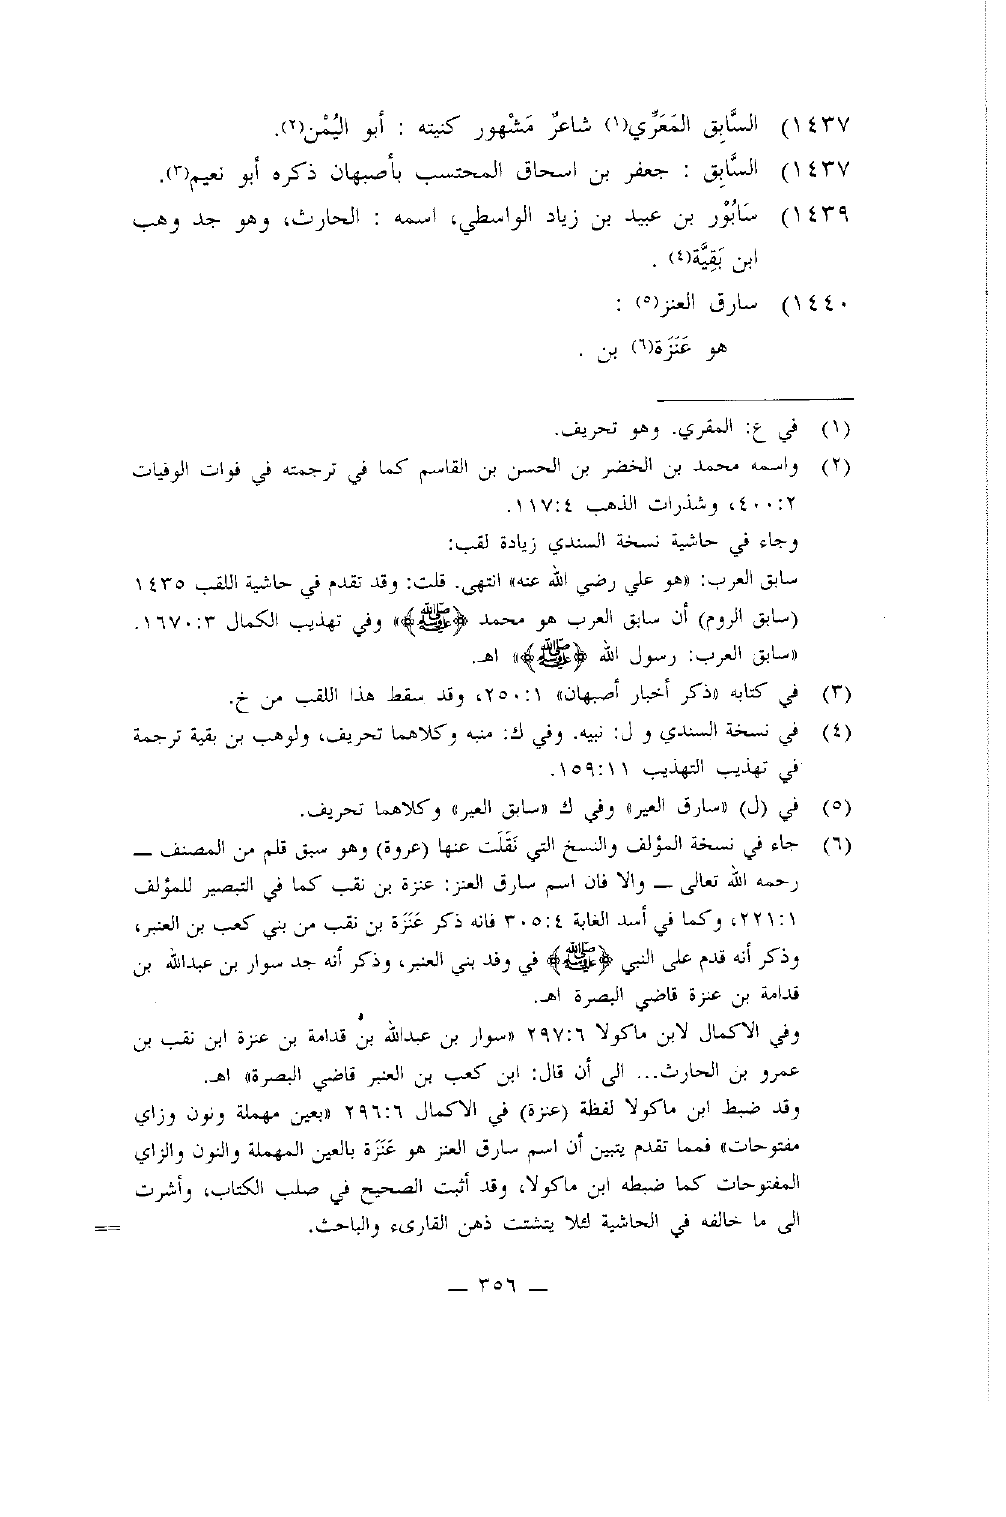 ١٤٣٧) السَّابِق المَعَرِّي(١) شاعرٌ مَشْهور كنيته : أبو اليُمْن(٢).
١٤٣٧) السَّابِق : جعفر بن اسحاق المحتسب بأصبهان ذكره أبو نعيم(٣).
١٤٣٩) سَابُوْر بن عبيد بن زياد الواسطي، اسمه : الحارث، وهو جد وهب
ابن بَقِيَّة(٤) .
١٤٤٠) سارق العنز(٥) :
هو عَنَزَة(٦) بن .
(١) في ع: المقري. وهو تحريف.
(٢) واسمه محمد بن الخضر بن الحسن بن القاسم كما في ترجمته في فوات الوفيات
٤٠٠:٢، وشذرات الذهب ١١٧:٤.
وجاء في حاشية نسخة السندي زيادة لقب:
سابق العرب: «هو علي رضي الله عنه» انتهى. قلت: وقد تقدم في حاشية اللقب ١٤٣٥
(سابق الروم) أن سابق العرب هو محمد ﴿ﷺ﴾» وفي تهذيب الكمال ١٦٧٠:٣.
«سابق العرب: رسول الله ﴿ﷺ﴾» اهـ.
(٣) في كتابه «ذكر أخبار أصبهان» ٢٥٠:١، وقد سقط هذا اللقب من خ.
(٤) في نسخة السندي و ل: نبيه. وفي ك: منبه وكلاهما تحريف، ولوهب بن بقية ترجمة
في تهذيب التهذيب ١٥٩:١١.
(٥) في (ل) «سارق العير» وفي ك «سابق العير» وكلاهما تحريف.
(٦) جاء في نسخة المؤلف والنسخ التي نَقَلَت عنها (عروة) وهو سبق قلم من المصنف ــ
رحمه الله تعالى ــ والا فان اسم سارق العنز: عنزة بن نقب كما في التبصير للمؤلف
٢٢١:١، وكما في أسد الغابة ٣٠٥:٤ فانه ذكر عَنَزَة بن نقب من بني كعب بن العنبر،
وذكر أنه قدم على النبي ﴿ﷺ﴾ في وفد بني العنبر، وذكر أنه جد سوار بن عبدالله بن
قدامة بن عنزة قاضي البصرة اهـ.
وفي الاكمال لابن ماكولا ٢٩٧:٦ «سوار بن عبدالله بن قدامة بن عنزة ابن نقب بن
عمرو بن الحارث... الى أن قال: ابن كعب بن العنبر قاضي البصرة» اهـ.
وقد ضبط ابن ماكولا لفظة (عنزة) في الاكمال ٢٩٦:٦ «بعين مهملة ونون وزاي
مفتوحات» فمما تقدم يتبين أن اسم سارق العنز هو عَنَزَة بالعين المهملة والنون والزاي
المفتوحات كما ضبطه ابن ماكولا، وقد أثبت الصحيح في صلب الكتاب، وأشرت
الى ما خالفه في الحاشية لئلا يتشتت ذهن القارىء والباحث. ==
ــ ٣٥٦ ــ